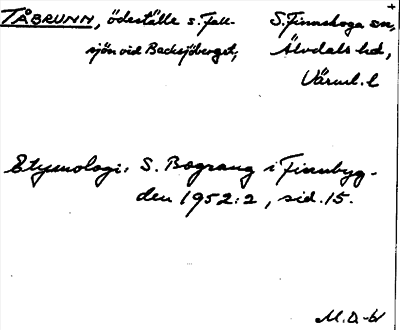 TÅBRUNN, ödeställe s. Fall- S. Finnskoga sn,
sjön vid Backsjöberget, Älvdals hd,
Värml. l
Etymologi: S. Bograng i Finnbyg-
den 1952:2, sid. 15.
M.D-bl